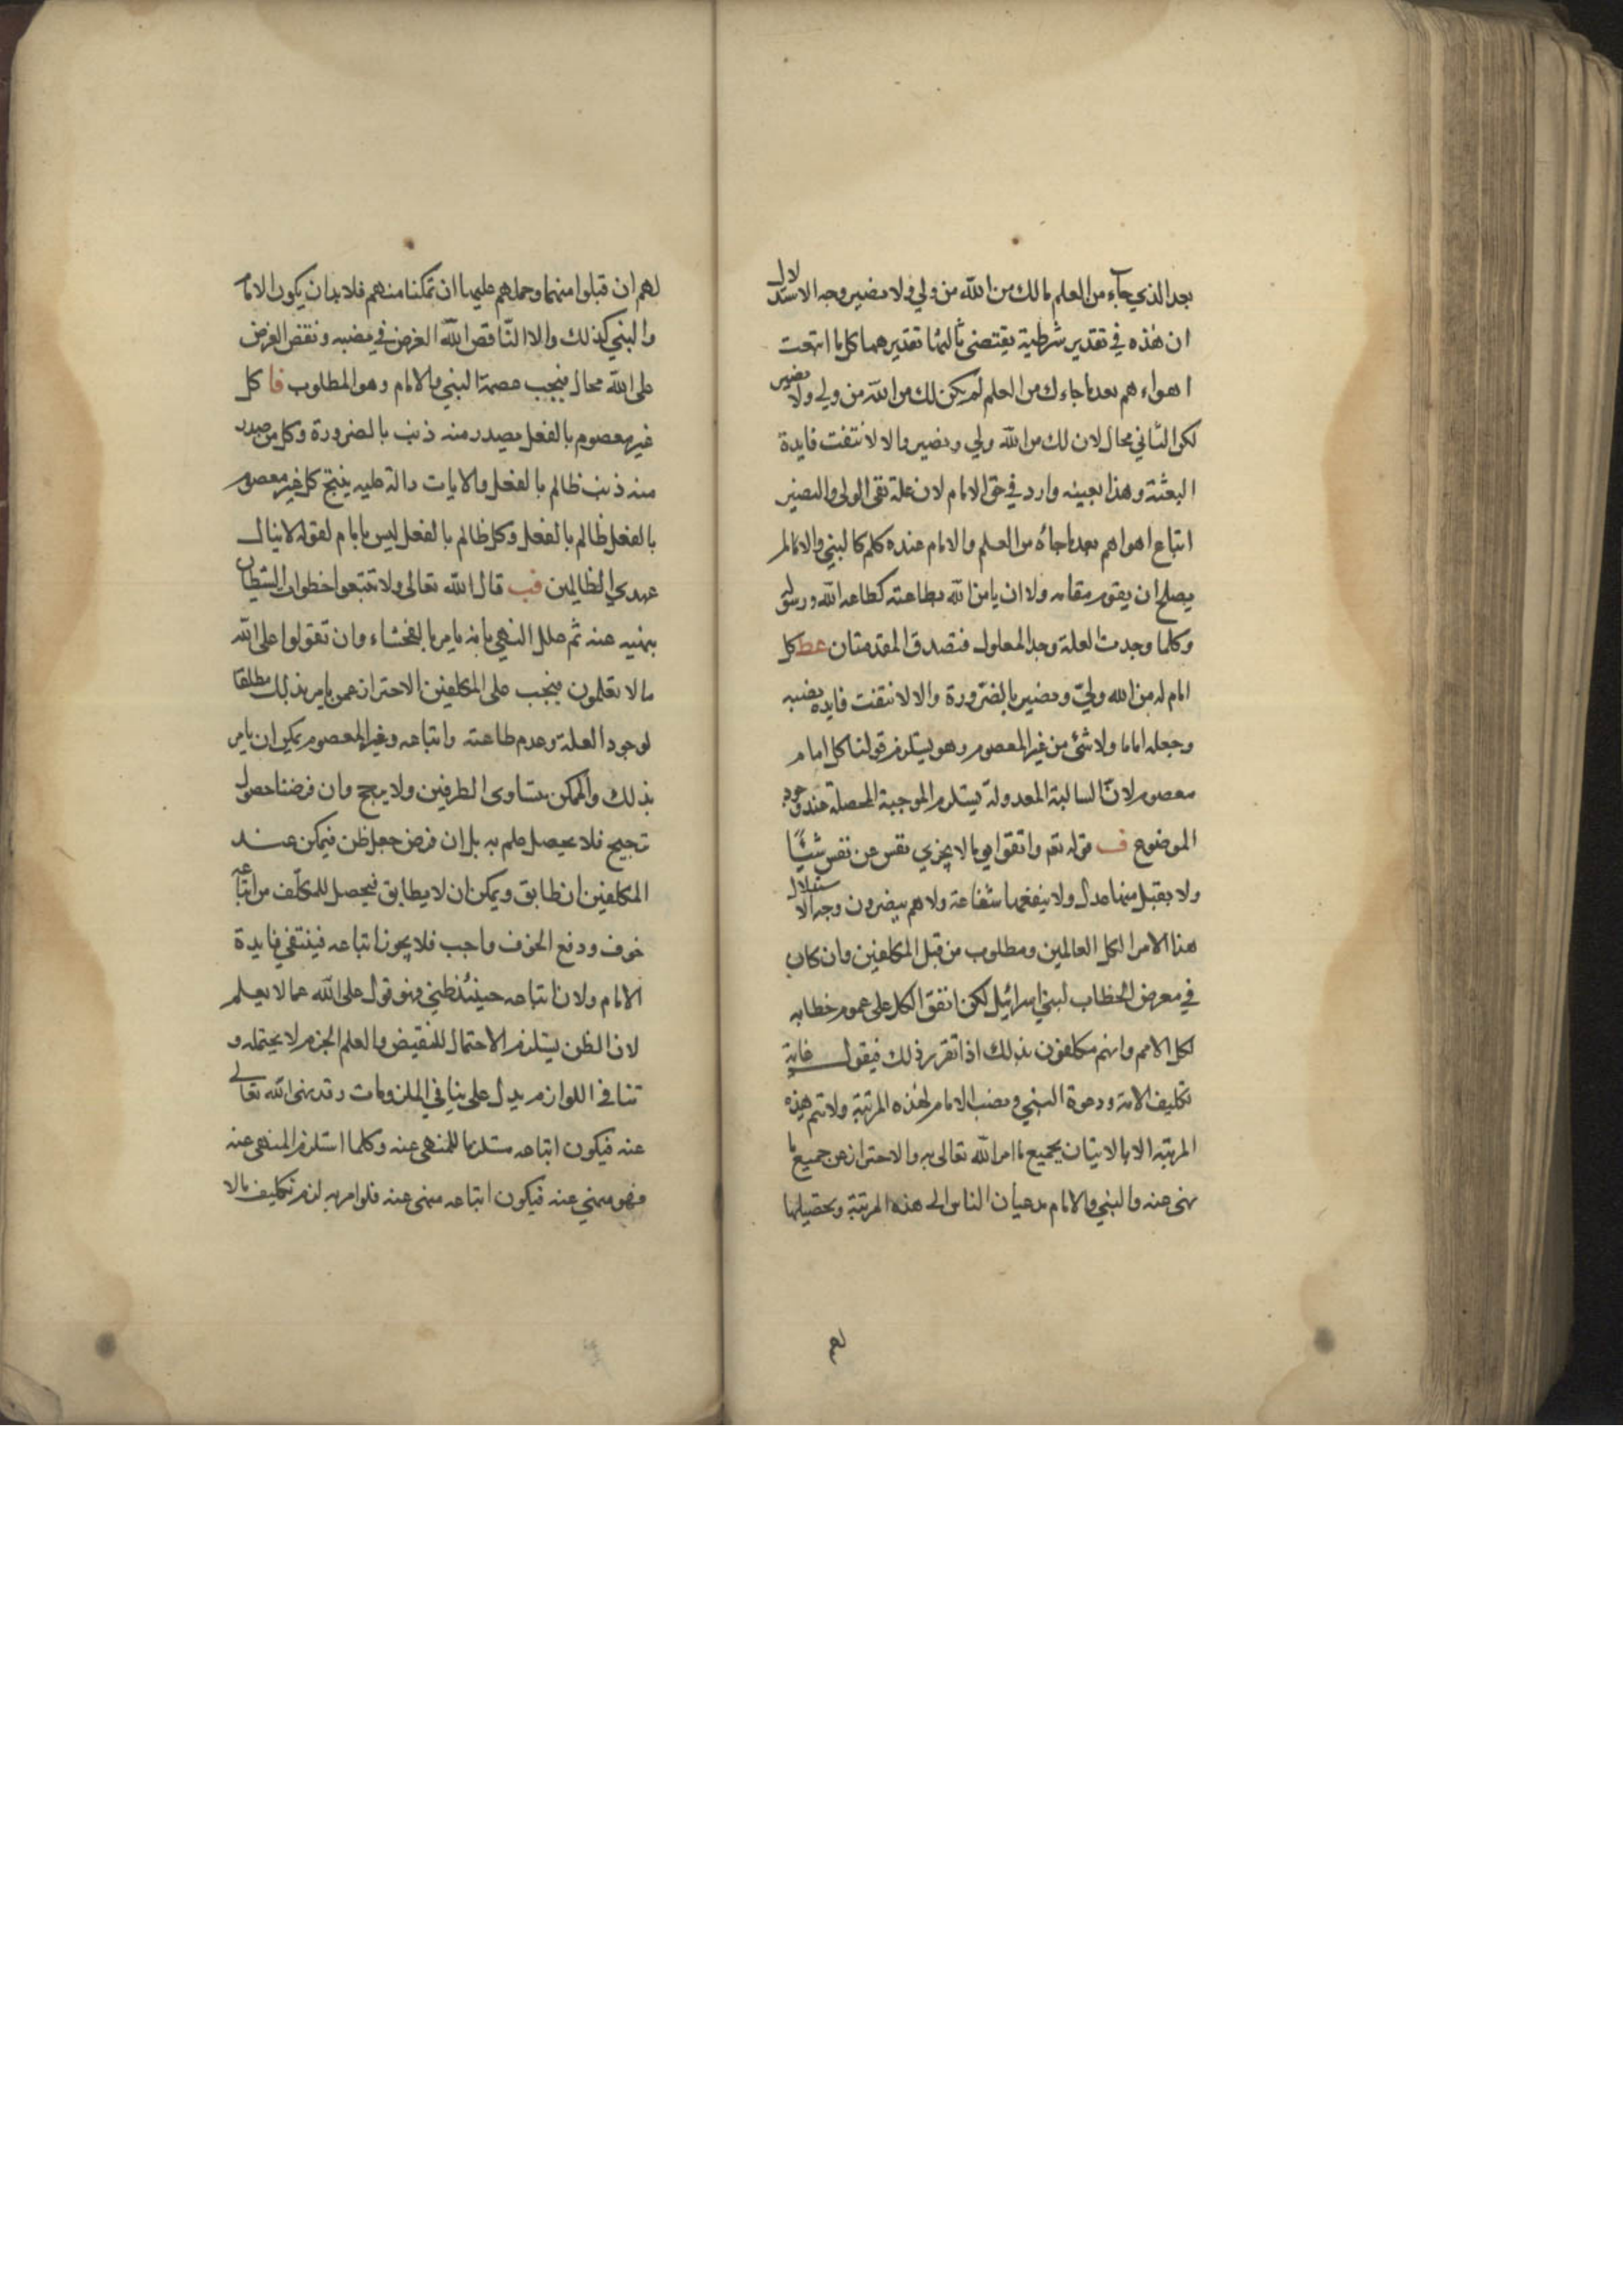 بعد الذي جاءك من العلم مالك من الله من ولي ولا نصير وجه الاستدلال
ان هذه في تقدير شرطية يقتضي تاليها تقديرهما كل ما اتبعت
اهواءهم بعد ما جاءك من العلم لم يكن لك من الله من ولي ولا نصير
لكن الثاني محال لان لك من الله ولي ونصير والا لانتفت فايدة
البعثة وهذا بعينه وارد في حق الامام لان علة نفي الولي والنصير
اتباع اهواهم بعد ما جاءه من العلم والامام عنده كلم كالنبي والا لم
يصلح ان يقوم مقامه ولا ان يامرنا الله بطاعته كطاعة الله ورسوله
وكلما وجدت العلة وجد المعلول فتصدق المقدمتان عط كل
امام له من الله ولي ونصير بالضرورة والا لانتفت فايدة نصبه
وجعله اماما ولا شئ من غير المعصوم وهو يستلزم قولنا كل امام
معصوم لان السالبة المعدولة يستلزم الموجبة المحصلة عند وجود
الموضوع ف قوله تع واتقوا يوما لا يجزي نفس عن نفس شيئا
ولا يقبل منها عدل ولا ينفعها شفاعة ولا هم ينصرون وجه الاستدلال
هذا الامر لكل العالمين ومطلوب من قبل المكلفين وان كان
في معرض الخطاب لبني اسرائيل لكن اتفق الكل على عموم خطابه
لكل الامم وانهم مكلفون بذلك اذا تقرر ذلك فيقول غاية
تكليف الامة ودعوة النبي ونصب الامام لهذه المرتبة ولا تتم هذه
المرتبة الا بالاتيان بجميع ما امر الله تعالى به والاحتراز عن جميع ما
نهى عنه والنبي والامام يدعيان الناس الى هذه المرتبة وتحصيلها
لهم
لهم ان قبلوا منهما وحملهم عليها ان تمكنا منهم فلا بد ان يكون الامام
والنبي كذلك والا لناقص الله الغرض في نصبه ونقض الغرض
على الله محال فيجب عصمة النبي والامام وهو المطلوب فا كل
غير معصوم بالفعل يصدر منه ذنب بالضرورة وكل من صدر
منه ذنب ظالم بالفعل والايات دالة عليه ينتج كل غير معصوم
بالفعل ظالم بالفعل وكل ظالم بالفعل ليس بامام لقوله لا ينال
عهدي الظالمين فب قال الله تعالى ولا تتبعوا خطوات الشيطان
بنهيه عنه ثم علل النهي بانه يامر بالفحشاء وان تقولوا على الله
ما لا تعلمون فيجب على المكلفين الاحتراز عمن يامر بذلك مطلقا
لوجود العلة وعدم طاعته واتباعه وغير المعصوم يمكن ان يامر
بذلك والممكن متساوي الطرفين ولا يرجح وان فرضنا حصول
ترجيح فلا يحصل علم به بل ان فرض حصل ظن فيمكن عند
المكلفين ان طابق ويمكن ان لا يطابق فيحصل للمكلف من اتباعه
خوف ودفع الخوف واجب فلا يجوز اتباعه فينتفي فايدة
الامام ولان اتباعه حينئذ ظني وهو قول على الله عما لا يعلم
لان الظن يستلزم الاحتمال للنقيض والعلم الجزم لا يحتمله و
تنافي اللوازم يدل على تنافي الملزومات وقد نهى الله تعالى
عنه فيكون اتباعه مستلزما للمنهى عنه وكلما استلزم المنهى عنه
فهو منهي عنه فيكون اتباعه منهى عنه فلو امر به لزم تكليف مالا